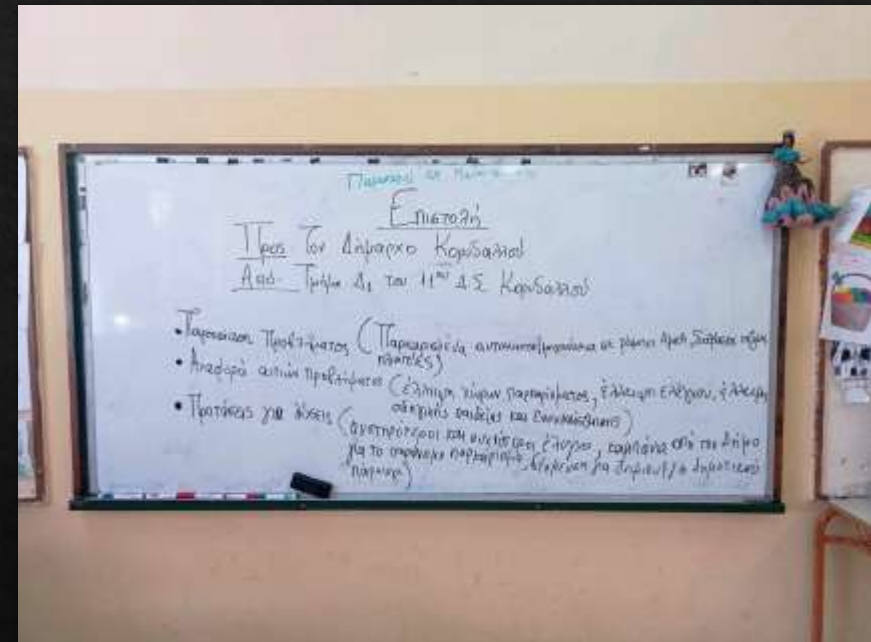 Επιστολή
Προς Τον Δήμαρχο Κορυδαλλού
Από Τμήμα Δ1 του 11ου Δ.Σ Κορυδαλλού
• Παρουσίαση Προβλήματος (Παρκαρισμένα αυτοκίνητα/μηχανάκια σε ράμπες ΑμεΑ, διαβάσεις πεζών
πλατείες)
• Αναφορά αιτιών προβλήματος (έλλειψη χώρων παρκαρίσματος, έλλειψη ελέγχου, έλλειψη
οδηγικής παιδείας και ενσυναίσθησης)
• Προτάσεις για λύσεις (αυστηρότεροι και συχνότεροι έλεγχοι, καμπάνια από τον Δήμο
για το παράνομο παρκάρισμα, για δημοτικού
πάρκινγκ)